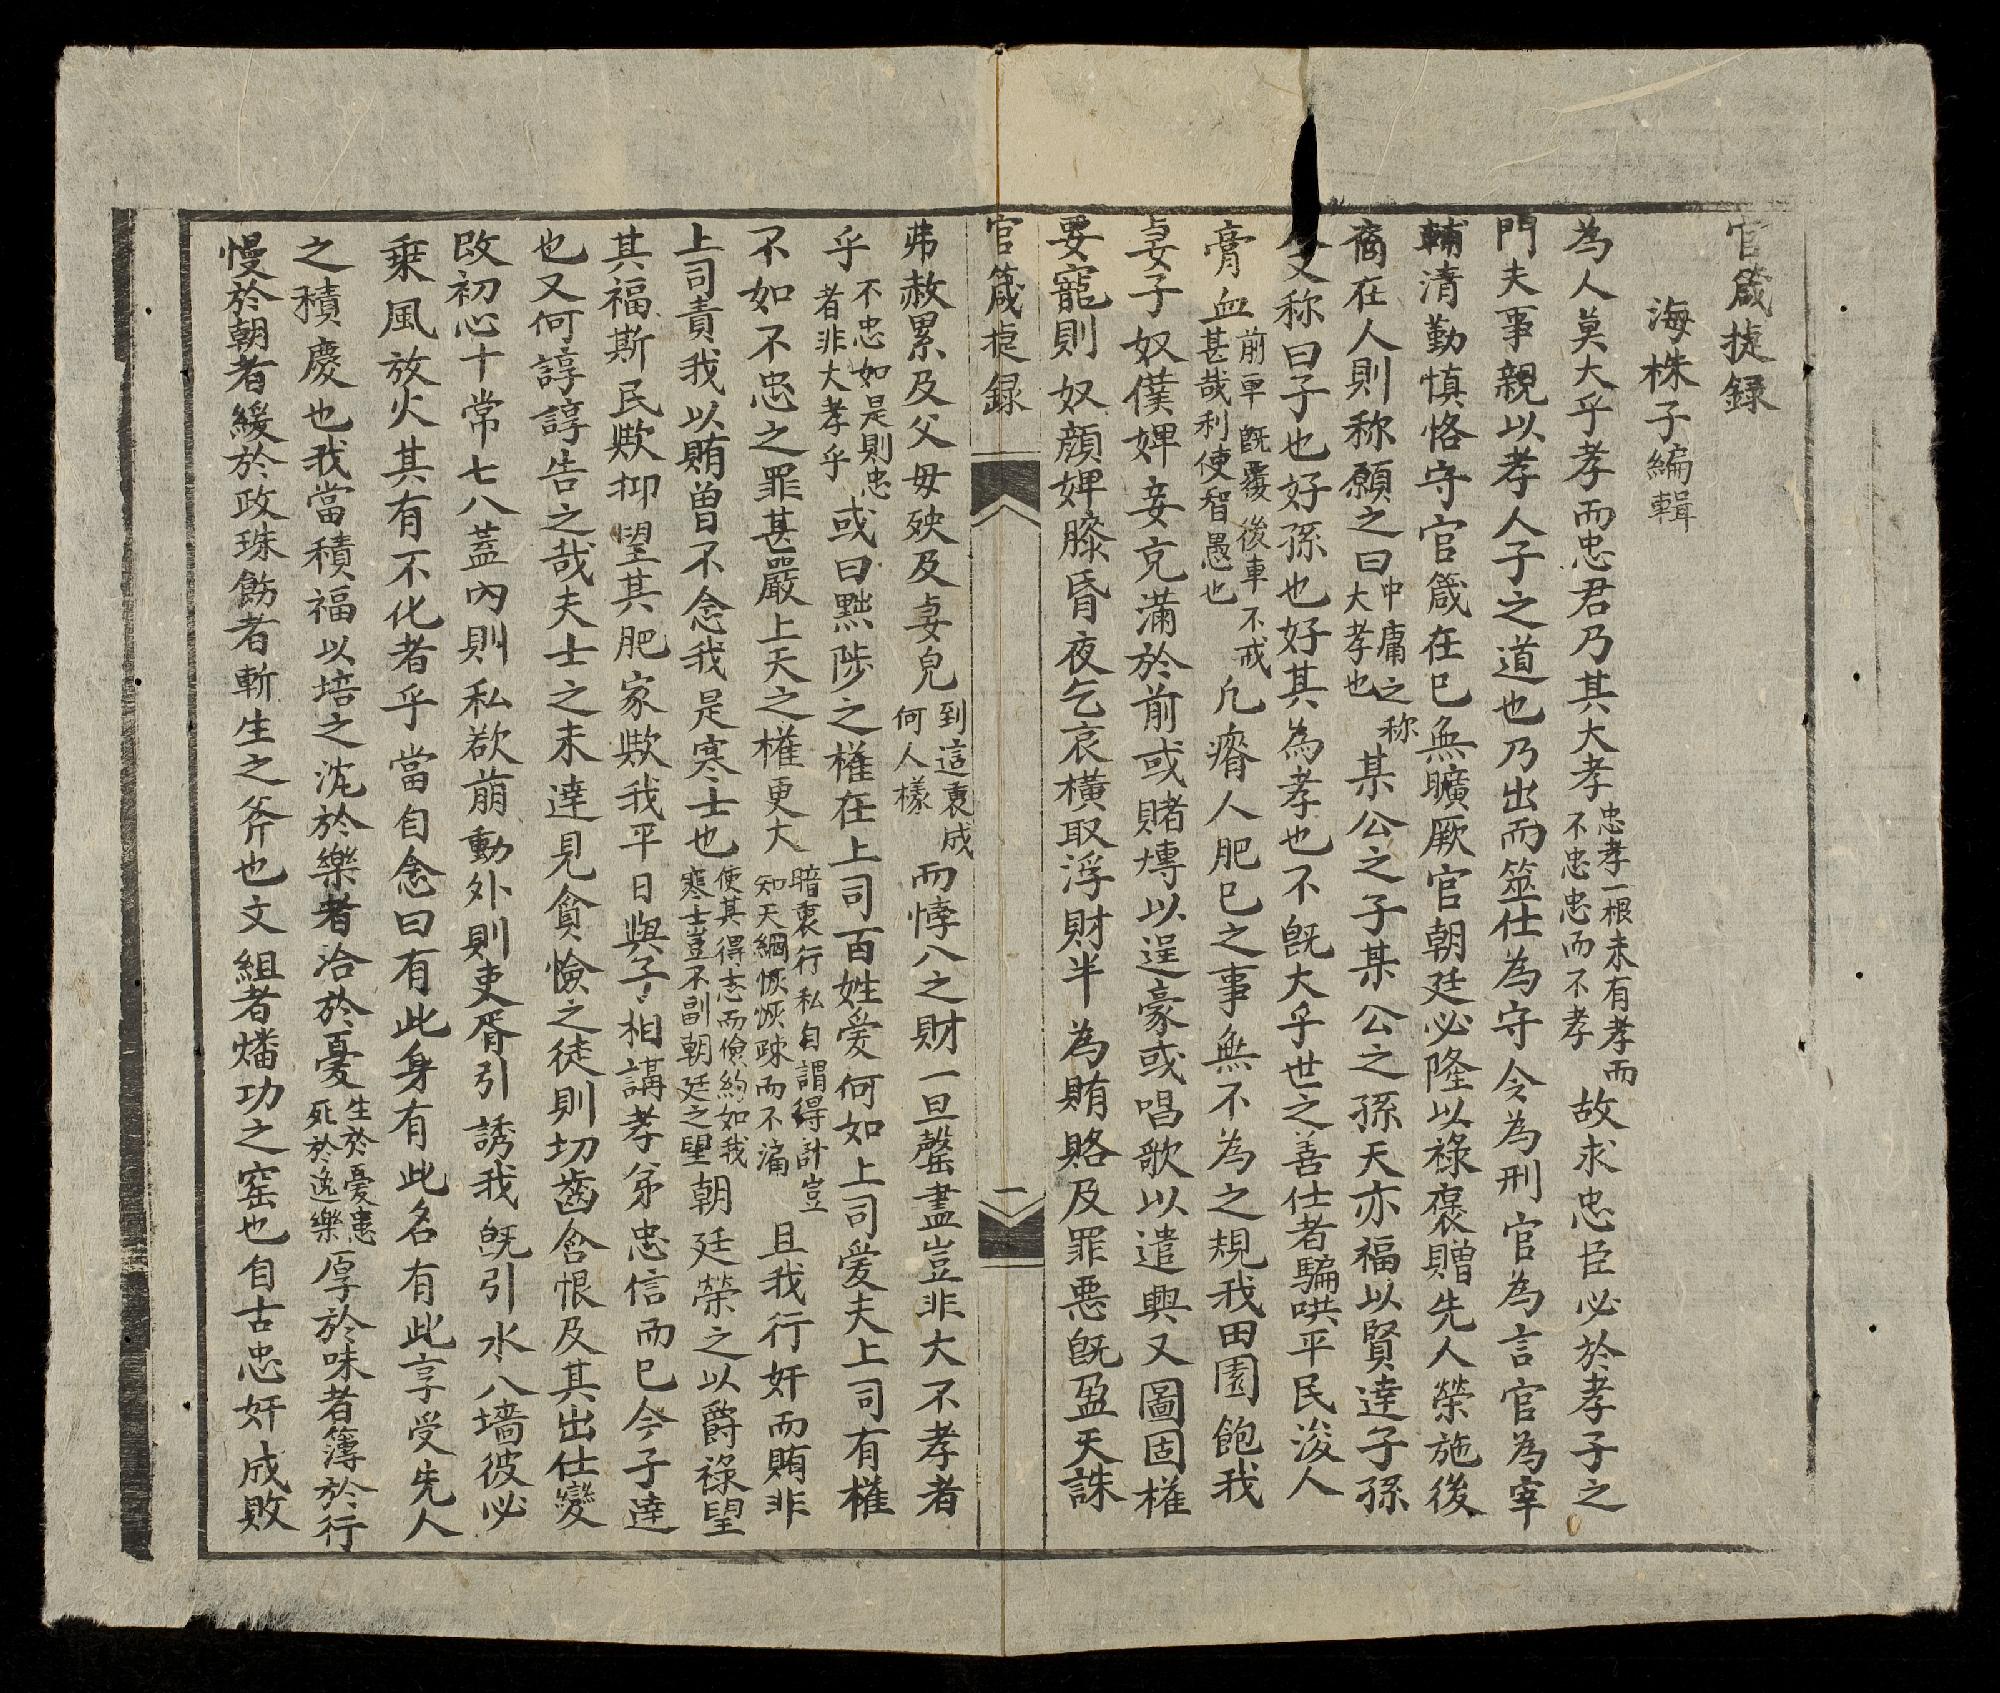 官箴捷録
海株子編輯
為人莫大乎孝而忠君乃其大孝忠孝一根未有孝而不忠忠而不孝故求忠臣必於孝子之
門夫事親以孝人子之道也乃出而筮仕為守令為刑官為言官為宰
輔清勤慎恪守官箴在巳無曠厥官朝廷必隆以祿褒贈先人榮施後
裔在人則称願之曰中庸之称大孝也某公之子某公之孫天亦福以賢達子孫
又称曰子也好孫也好其為孝也不既大乎世之善仕者騙哄平民浚人
膏血前車既覆後車不戒甚哉利使智愚也凡瘠人肥巳之事無不為之規我田園飽我
妻子奴僕婢妾充滿於前或賭慱以逞豪或唱歌以遣興又圖固權
要寵則奴顔婢膝昏夜乞哀橫取浮財半為賄賂及罪惡既盈天誅
官箴捷録
一
弗赦累及父母殃及妻兒到這裏成何人樣而悖入之財一旦罄盡豈非大不孝者
乎不忠如是則忠者非大孝乎或曰黜陟之權在上司百姓爱何如上司爱夫上司有權
不如不忠之罪甚嚴上天之權更大暗裏行私自謂得計豈知天綱恢恢疎而不漏且我行奸而賄非
上司責我以賄曽不念我是寒士也使其得志而儉約如我寒士豈不副朝廷之望朝廷榮之以爵祿望
其福斯民歟抑望其肥家歟我平日與子相講孝弟忠信而巳今子達
也又何諄諄告之哉夫士之未達見貪憸之徒則切齒含恨及其出仕變
改初心十常七八蓋內則私欲萠動外則吏胥引誘我既引水入墻彼必
乗風放火其有不化者乎當自念曰有此身有此名有此享受先人
之積慶也我當積福以培之沈於樂者洽於憂生於憂患死於逸樂厚於味者簿於行
慢於朝者緩於政珠飾者斬生之斧也文組者燔功之窑也自古忠奸成敗